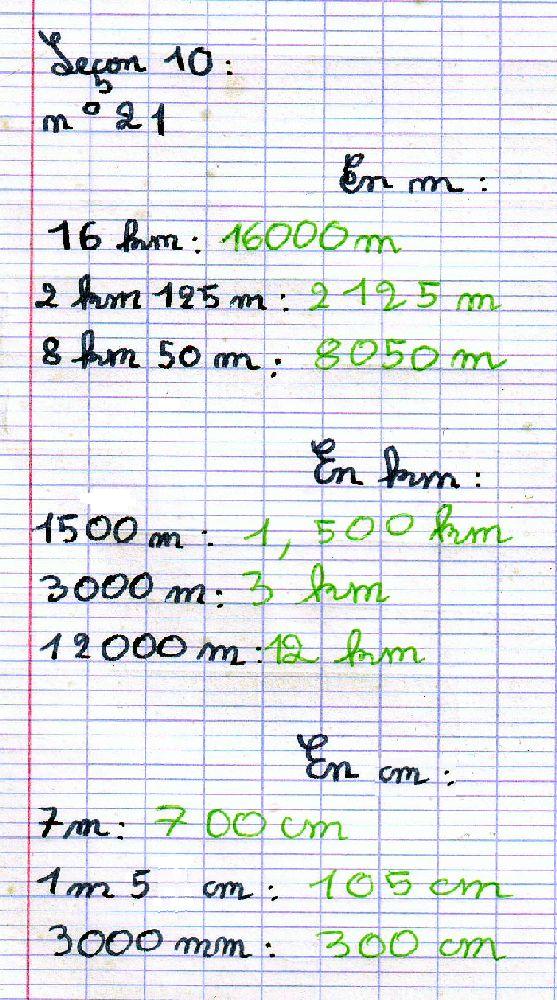 Leçon 10 :
n° 21
En m :
16 km : 16000 m
2 km 125 m : 2125 m
8 km 50 m : 8050 m
En km :
1500 m : 1,500 km
3000 m : 3 km
12000 m : 12 km
En cm :
7m : 700 cm
1m 5 cm : 105 cm
3000 mm : 300 cm